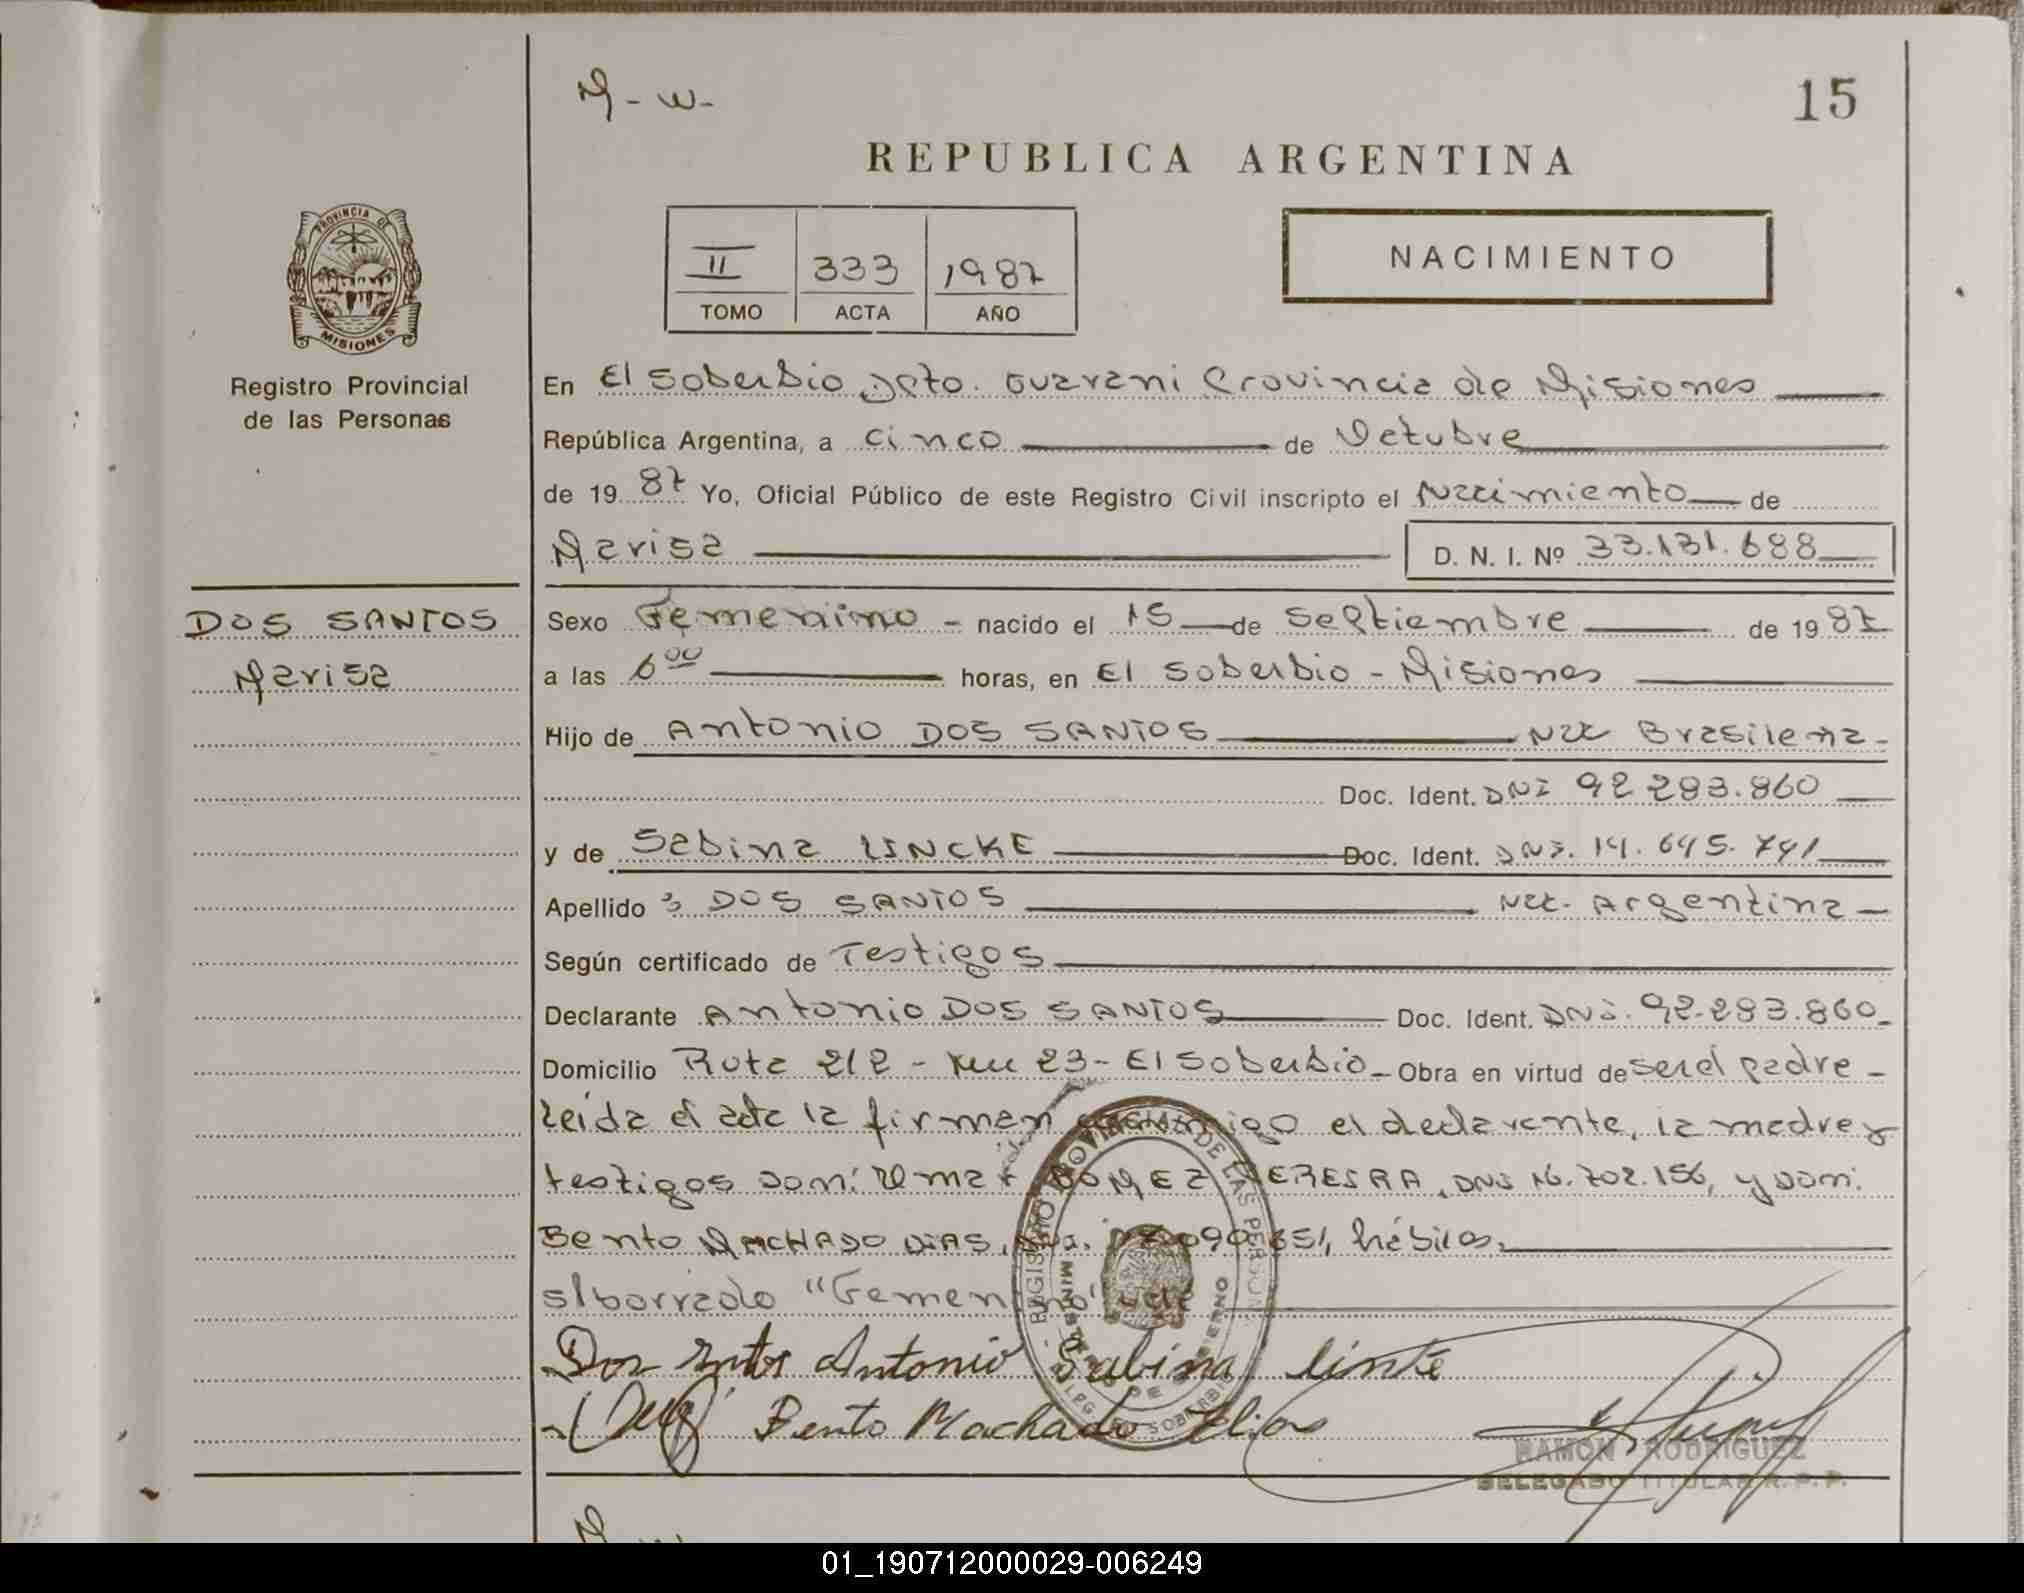 M-W-
15
REPUBLICA ARGENTINA
II 333 1987
TOMO ACTA AÑO
NACIMIENTO
PROVINCIA DE
MISIONES
Registro Provincial
de las Personas
En El Soberbio Dpto. Guarani Provincia de Misiones
República Argentina, a cinco de Octubre
de 1987 Yo, Oficial Público de este Registro Civil inscripto el Nacimiento de
Marisa D. N. I. Nº 33.131.688
DOS SANTOS
Marisa
Sexo Femenino - nacido el 15 de Septiembre de 1987
a las 6 00 horas, en El Soberbio - Misiones
Hijo de Antonio DOS SANTOS Nac Brasilena-
Doc. Ident. DNI 92 293.860
y de Sabina LINCKE Doc. Ident. DNI. 14.645.741
Apellido DOS SANTOS Nac. Argentina-
Según certificado de Testigos
Declarante Antonio DOS SANTOS Doc. Ident. DNI. 92.293.860-
Domicilio Ruta 212 - km 23 - El Soberbio - Obra en virtud de ser el padre-
Leida el acta la firman conmigo el declarante, la madre y
testigos GOMEZ PEREIRA, DNI 16.702.156, y
Bento MACHADO DIAS, hábiles.
s/borrado "Femenino" vale
Dos Santos Antonio Sabina linke
Bento Machado Dias
REGISTRO PROVINCIAL DE LAS PERSONAS
MINISTERIO DE GOBIERNO
SOBERBIO
RAMON RODRIGUEZ
DELEGADO TITULAR R. P. P.
M-W-
01_190712000029-006249